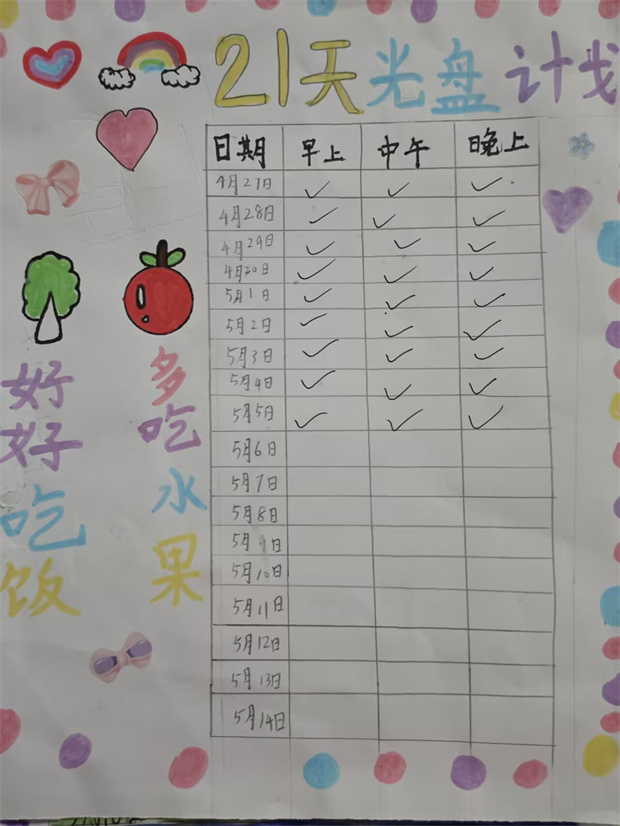 21天光盘计划
日期 早上 中午 晚上
4月27日 ✓ ✓ ✓
4月28日 ✓ ✓ ✓
4月29日 ✓ ✓ ✓
4月30日 ✓ ✓ ✓
5月1日 ✓ ✓ ✓
5月2日 ✓ ✓ ✓
5月3日 ✓ ✓ ✓
5月4日 ✓ ✓ ✓
5月5日 ✓ ✓ ✓
5月6日
5月7日
5月8日
5月9日
5月10日
5月11日
5月12日
5月13日
5月14日
好好吃饭
多吃水果